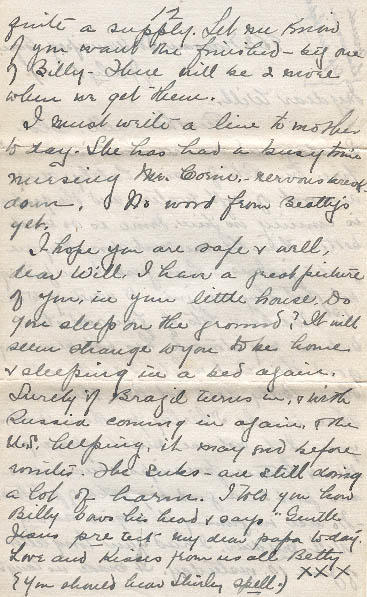 12
quite a supply. Let me know
if you want the finished - big one
of Billy - There will be 2 more
when we get them.
I must write a line to mother
to day. She has had a busy time
nursing Mrs. - nervous break-
down. No word from Beattys
yet.
I hope you are safe & well,
dear Will. I have a great picture
of you, in your little house. Do
you sleep on the ground? It will
seem strange to you to be home
& sleeping in a bed again.
Surely if Brazil turns in, & with
Russia coming in again, & the
U.S. helping, it may end before
The subs - are still doing
a lot of harm. I told you how
Billy bows his head & says "Gentle
Jesus pro tect my dear papa to day.
Love and Kisses from us all Betty
(You should hear Shirley spell.) XXX